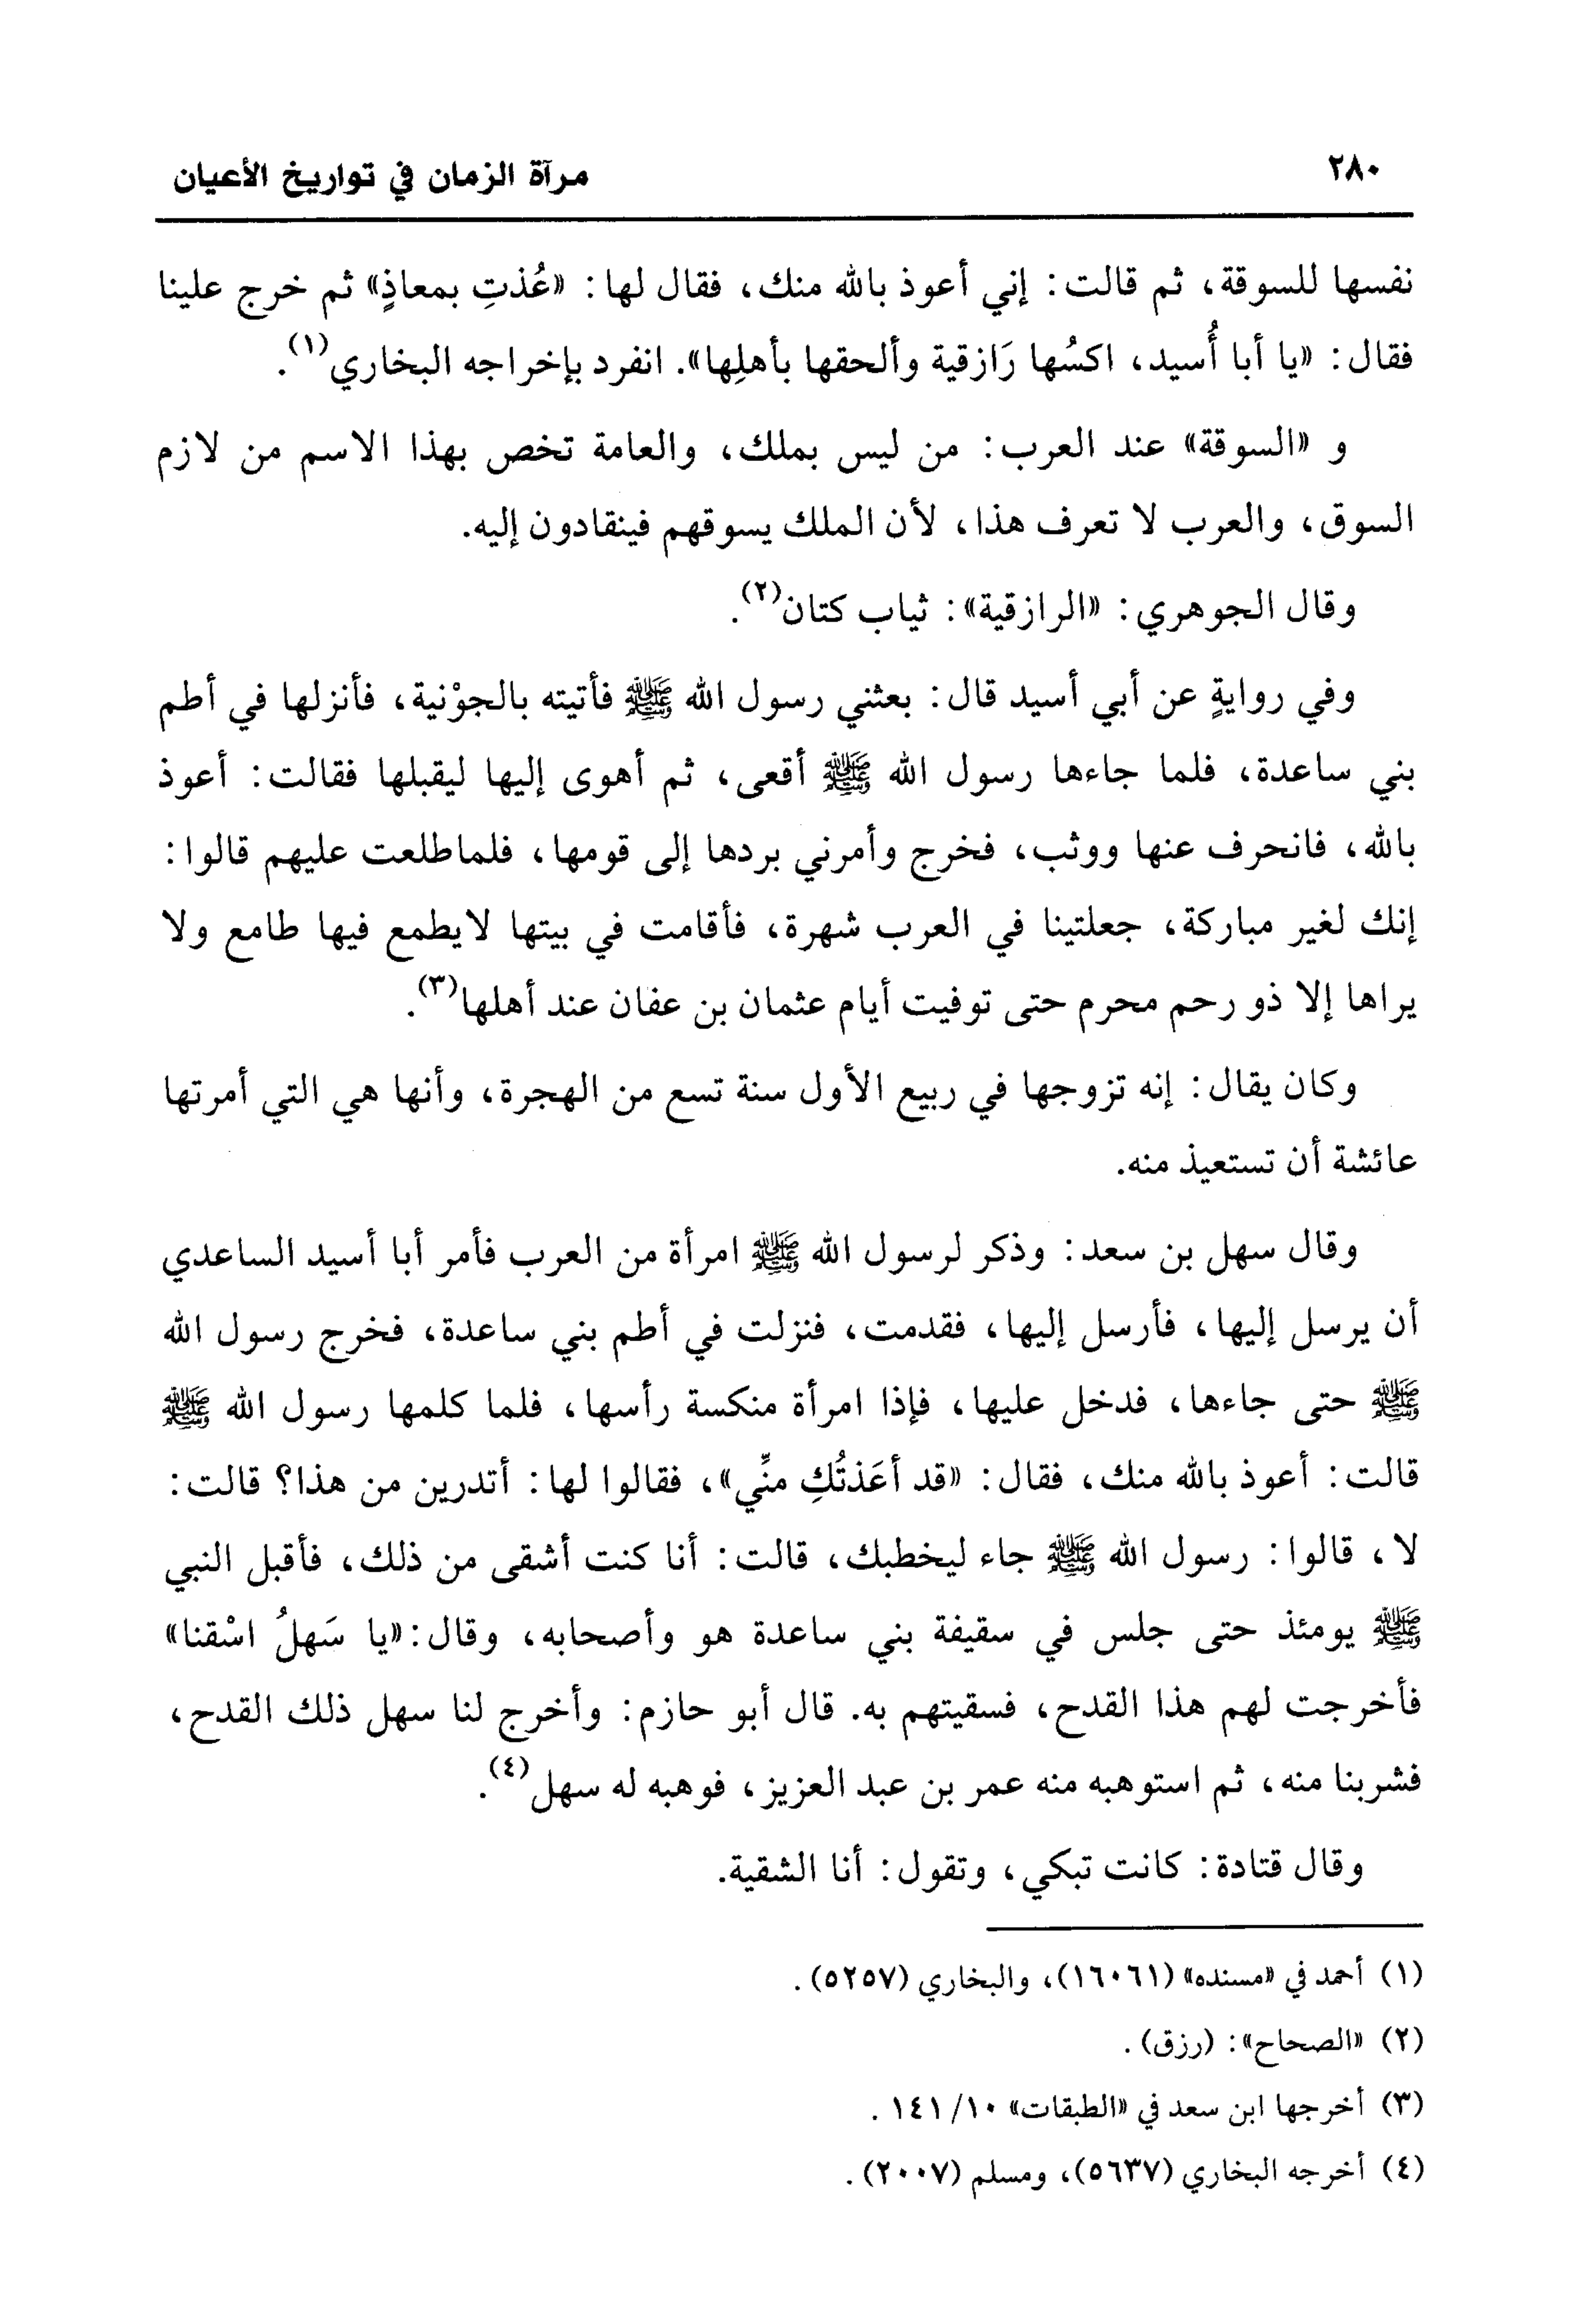 ٢٨٠
مرآة الزمان في تواريخ الأعيان
نفسها للسوقة، ثم قالت: إني أعوذ بالله منك، فقال لها: «عُذتِ بمعاذٍ» ثم خرج علينا
فقال: «يا أبا أُسيد، اكسُها رَازقية وألحقها بأهلِها». انفرد بإخراجه البخاري(١).
و «السوقة» عند العرب: من ليس بملك، والعامة تخص بهذا الاسم من لازم
السوق، والعرب لا تعرف هذا، لأن الملك يسوقهم فينقادون إليه.
وقال الجوهري: «الرازقية»: ثياب كتان(٢).
وفي روايةٍ عن أبي أسيد قال: بعثني رسول الله ﷺ فأتيته بالجوْنية، فأنزلها في أطم
بني ساعدة، فلما جاءها رسول الله ﷺ أقعى، ثم أهوى إليها ليقبلها فقالت: أعوذ
بالله، فانحرف عنها ووثب، فخرج وأمرني بردها إلى قومها، فلماطلعت عليهم قالوا:
إنك لغير مباركة، جعلتينا في العرب شهرة، فأقامت في بيتها لايطمع فيها طامع ولا
يراها إلا ذو رحم محرم حتى توفيت أيام عثمان بن عفان عند أهلها(٣).
وكان يقال: إنه تزوجها في ربيع الأول سنة تسع من الهجرة، وأنها هي التي أمرتها
عائشة أن تستعيذ منه.
وقال سهل بن سعد: وذكر لرسول الله ﷺ امرأة من العرب فأمر أبا أسيد الساعدي
أن يرسل إليها، فأرسل إليها، فقدمت، فنزلت في أطم بني ساعدة، فخرج رسول الله
ﷺ حتى جاءها، فدخل عليها، فإذا امرأة منكسة رأسها، فلما كلمها رسول الله ﷺ
قالت: أعوذ بالله منك، فقال: «قد أعَذتُكِ منِّي»، فقالوا لها: أتدرين من هذا؟ قالت:
لا، قالوا: رسول الله ﷺ جاء ليخطبك، قالت: أنا كنت أشقى من ذلك، فأقبل النبي
ﷺ يومئذ حتى جلس في سقيفة بني ساعدة هو وأصحابه، وقال:«يا سَهلُ اسْقنا»
فأخرجت لهم هذا القدح، فسقيتهم به. قال أبو حازم: وأخرج لنا سهل ذلك القدح،
فشربنا منه، ثم استوهبه منه عمر بن عبد العزيز، فوهبه له سهل(٤).
وقال قتادة: كانت تبكي، وتقول: أنا الشقية.
(١) أحمد في «مسنده» (١٦٠٦١)، والبخاري (٥٢٥٧).
(٢) «الصحاح»: (رزق).
(٣) أخرجها ابن سعد في «الطبقات» ١٠/ ١٤١.
(٤) أخرجه البخاري (٥٦٣٧)، ومسلم (٢٠٠٧).